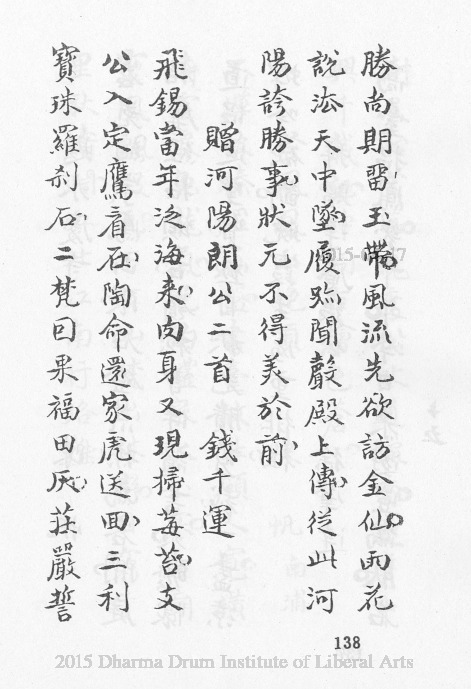 勝尚期畱玉帶風流先欲訪金仙雨花
說法天中墜履跡聞聲殿上傳從此河
陽誇勝事狀元不得美於前
贈河陽朗公二首 錢千運
飛錫當年泛海來肉身又現掃莓苔支
公入定鷹看在陶命還家虎送回三利
寶珠羅剎石二梵回果福田灰莊嚴誓
138
2015 Dharma Drum Institute of Liberal Arts